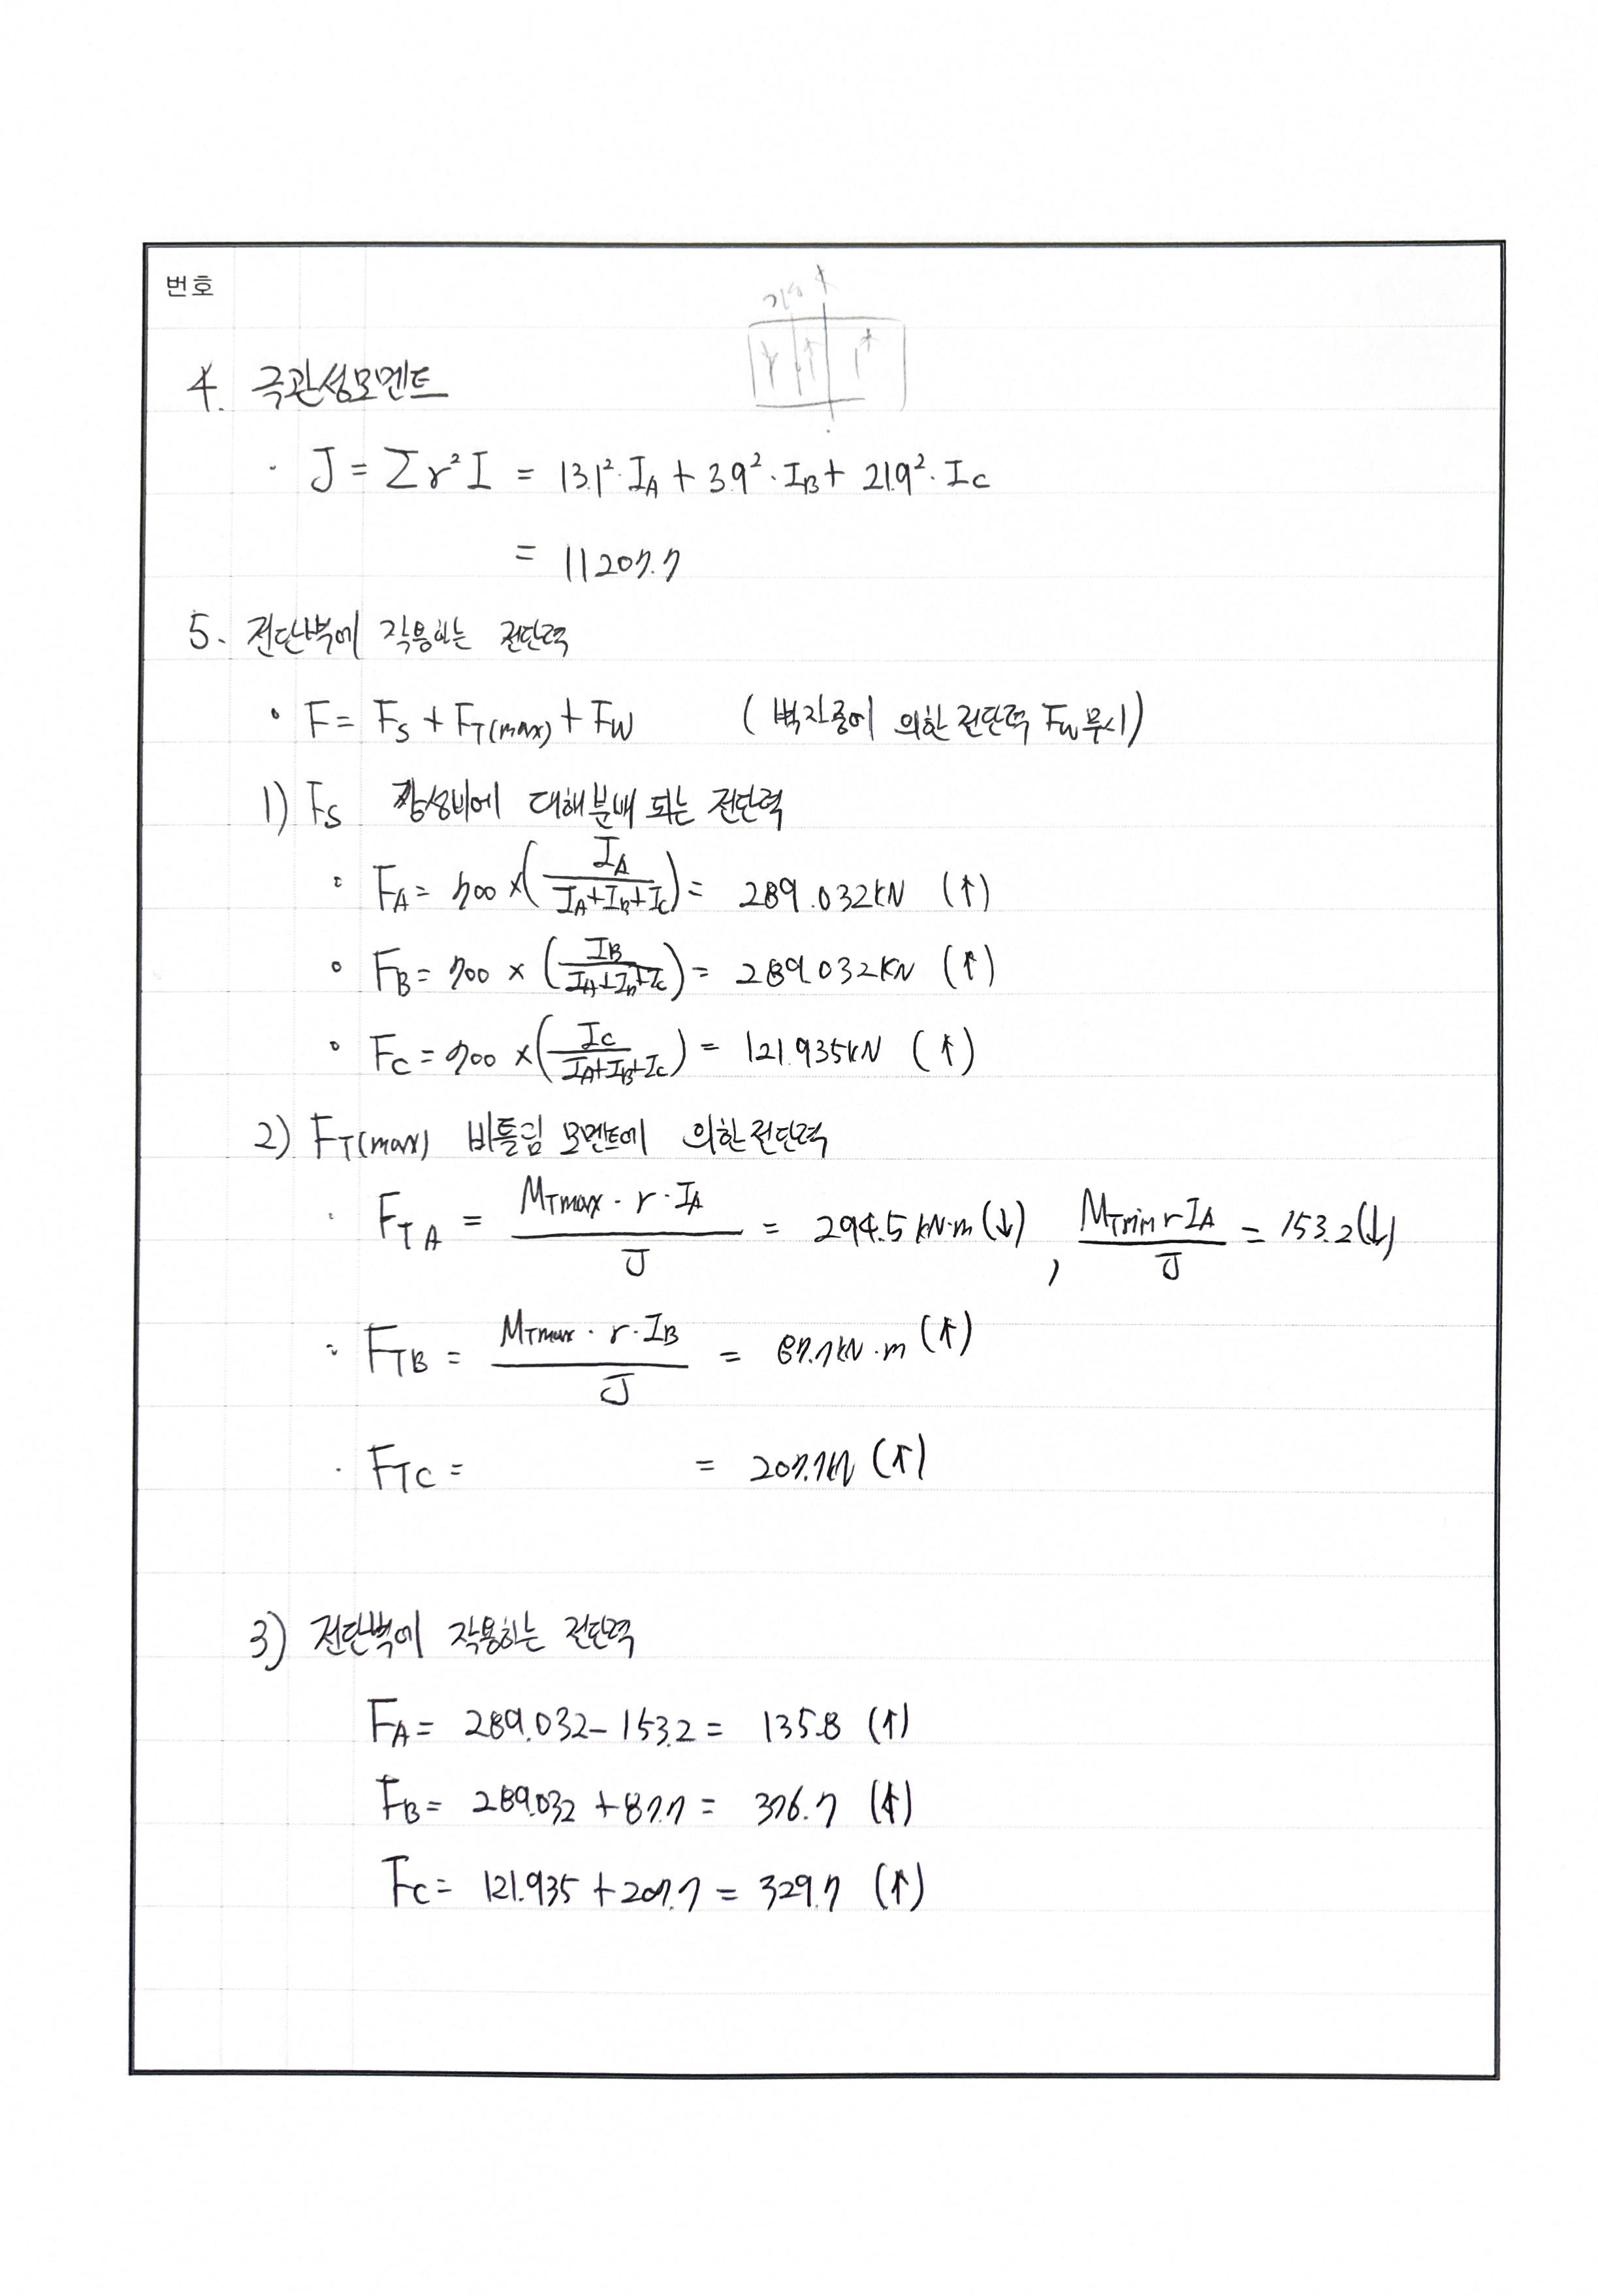 번호
4. 극관성모멘트
· J = Σr²I = 13.1²·I_A + 3.9²·I_B + 21.9²·I_C
= 11207.7
5. 전단벽에 작용하는 전단력
· F = F_S + F_T(max) + F_W (벽자중에 의한 전단력 F_W 무시)
1) F_S 강성비에 대해 분배 되는 전단력
· F_A = 700 × (I_A / (I_A+I_B+I_C)) = 289.032kN (↑)
· F_B = 700 × (I_B / (I_A+I_B+I_C)) = 289.032kN (↑)
· F_C = 700 × (I_C / (I_A+I_B+I_C)) = 121.935kN (↑)
2) F_T(max) 비틀림 모멘트에 의한 전단력
· F_TA = (M_Tmax · r · I_A) / J = 294.5 kN·m (↓), (M_Tmin r I_A) / J = 153.2 (↓)
· F_TB = (M_Tmax · r · I_B) / J = 87.7kN·m (↑)
· F_TC = = 207.7kN (↑)
3) 전단벽에 작용하는 전단력
F_A = 289.032 - 153.2 = 135.8 (↑)
F_B = 289.032 + 87.7 = 376.7 (↑)
F_C = 121.935 + 207.7 = 329.7 (↑)